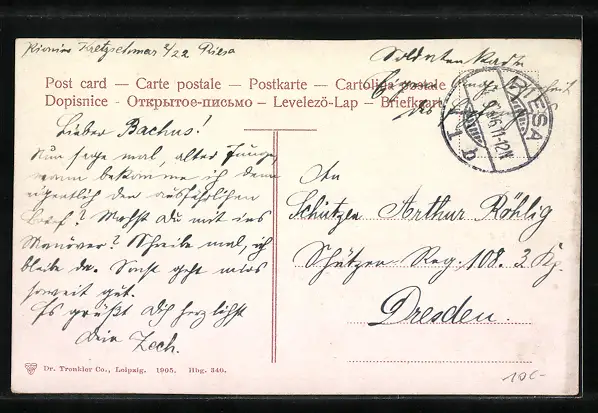 Pionier Kretzschmar 2/22 Riesa
Soldatenkarte
Eigene Angelegenheit
des
Post card — Carte postale — Postkarte — Cartolina postale
Dopisnice - Открытое-письмо — Levelező-Lap — Briefkaart
RIESA
11-12N
Lieber Bachus!
Nun sage mal, alter Junge,
wann bekomme ich denn
eigentlich den ausführlichen
Brief? Machst Du mit ins
Manöver? Schreibe mal, ich
bleibe da. Sonst geht mirs
soweit gut.
Es grüßt Dich herzlichst
Dein Zech.
An
Schützen Arthur Röhlig
Schützen-Reg. 108. 3 Kp.
Dresden.
Dr. Trenkler Co., Leipzig. 1905. Hbg. 340.
10.-